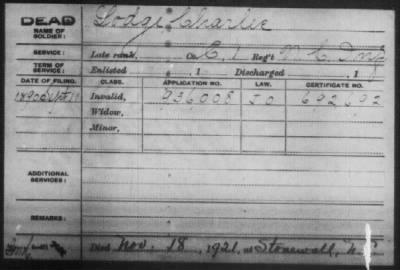 DEAD
NAME OF SOLDIER: Lodge, Charlie
SERVICE: Late rank, Co. C, 1 Reg't N.C. Inf
TERM OF SERVICE: Enlisted , 1 Discharged , 1
DATE OF FILING. CLASS. APPLICATION NO. LAW. CERTIFICATE NO.
1890 Invalid, 936008 692692
Widow,
Minor,
ADDITIONAL SERVICES:
REMARKS:
Died Nov. 18, 1921, at Stonewall,